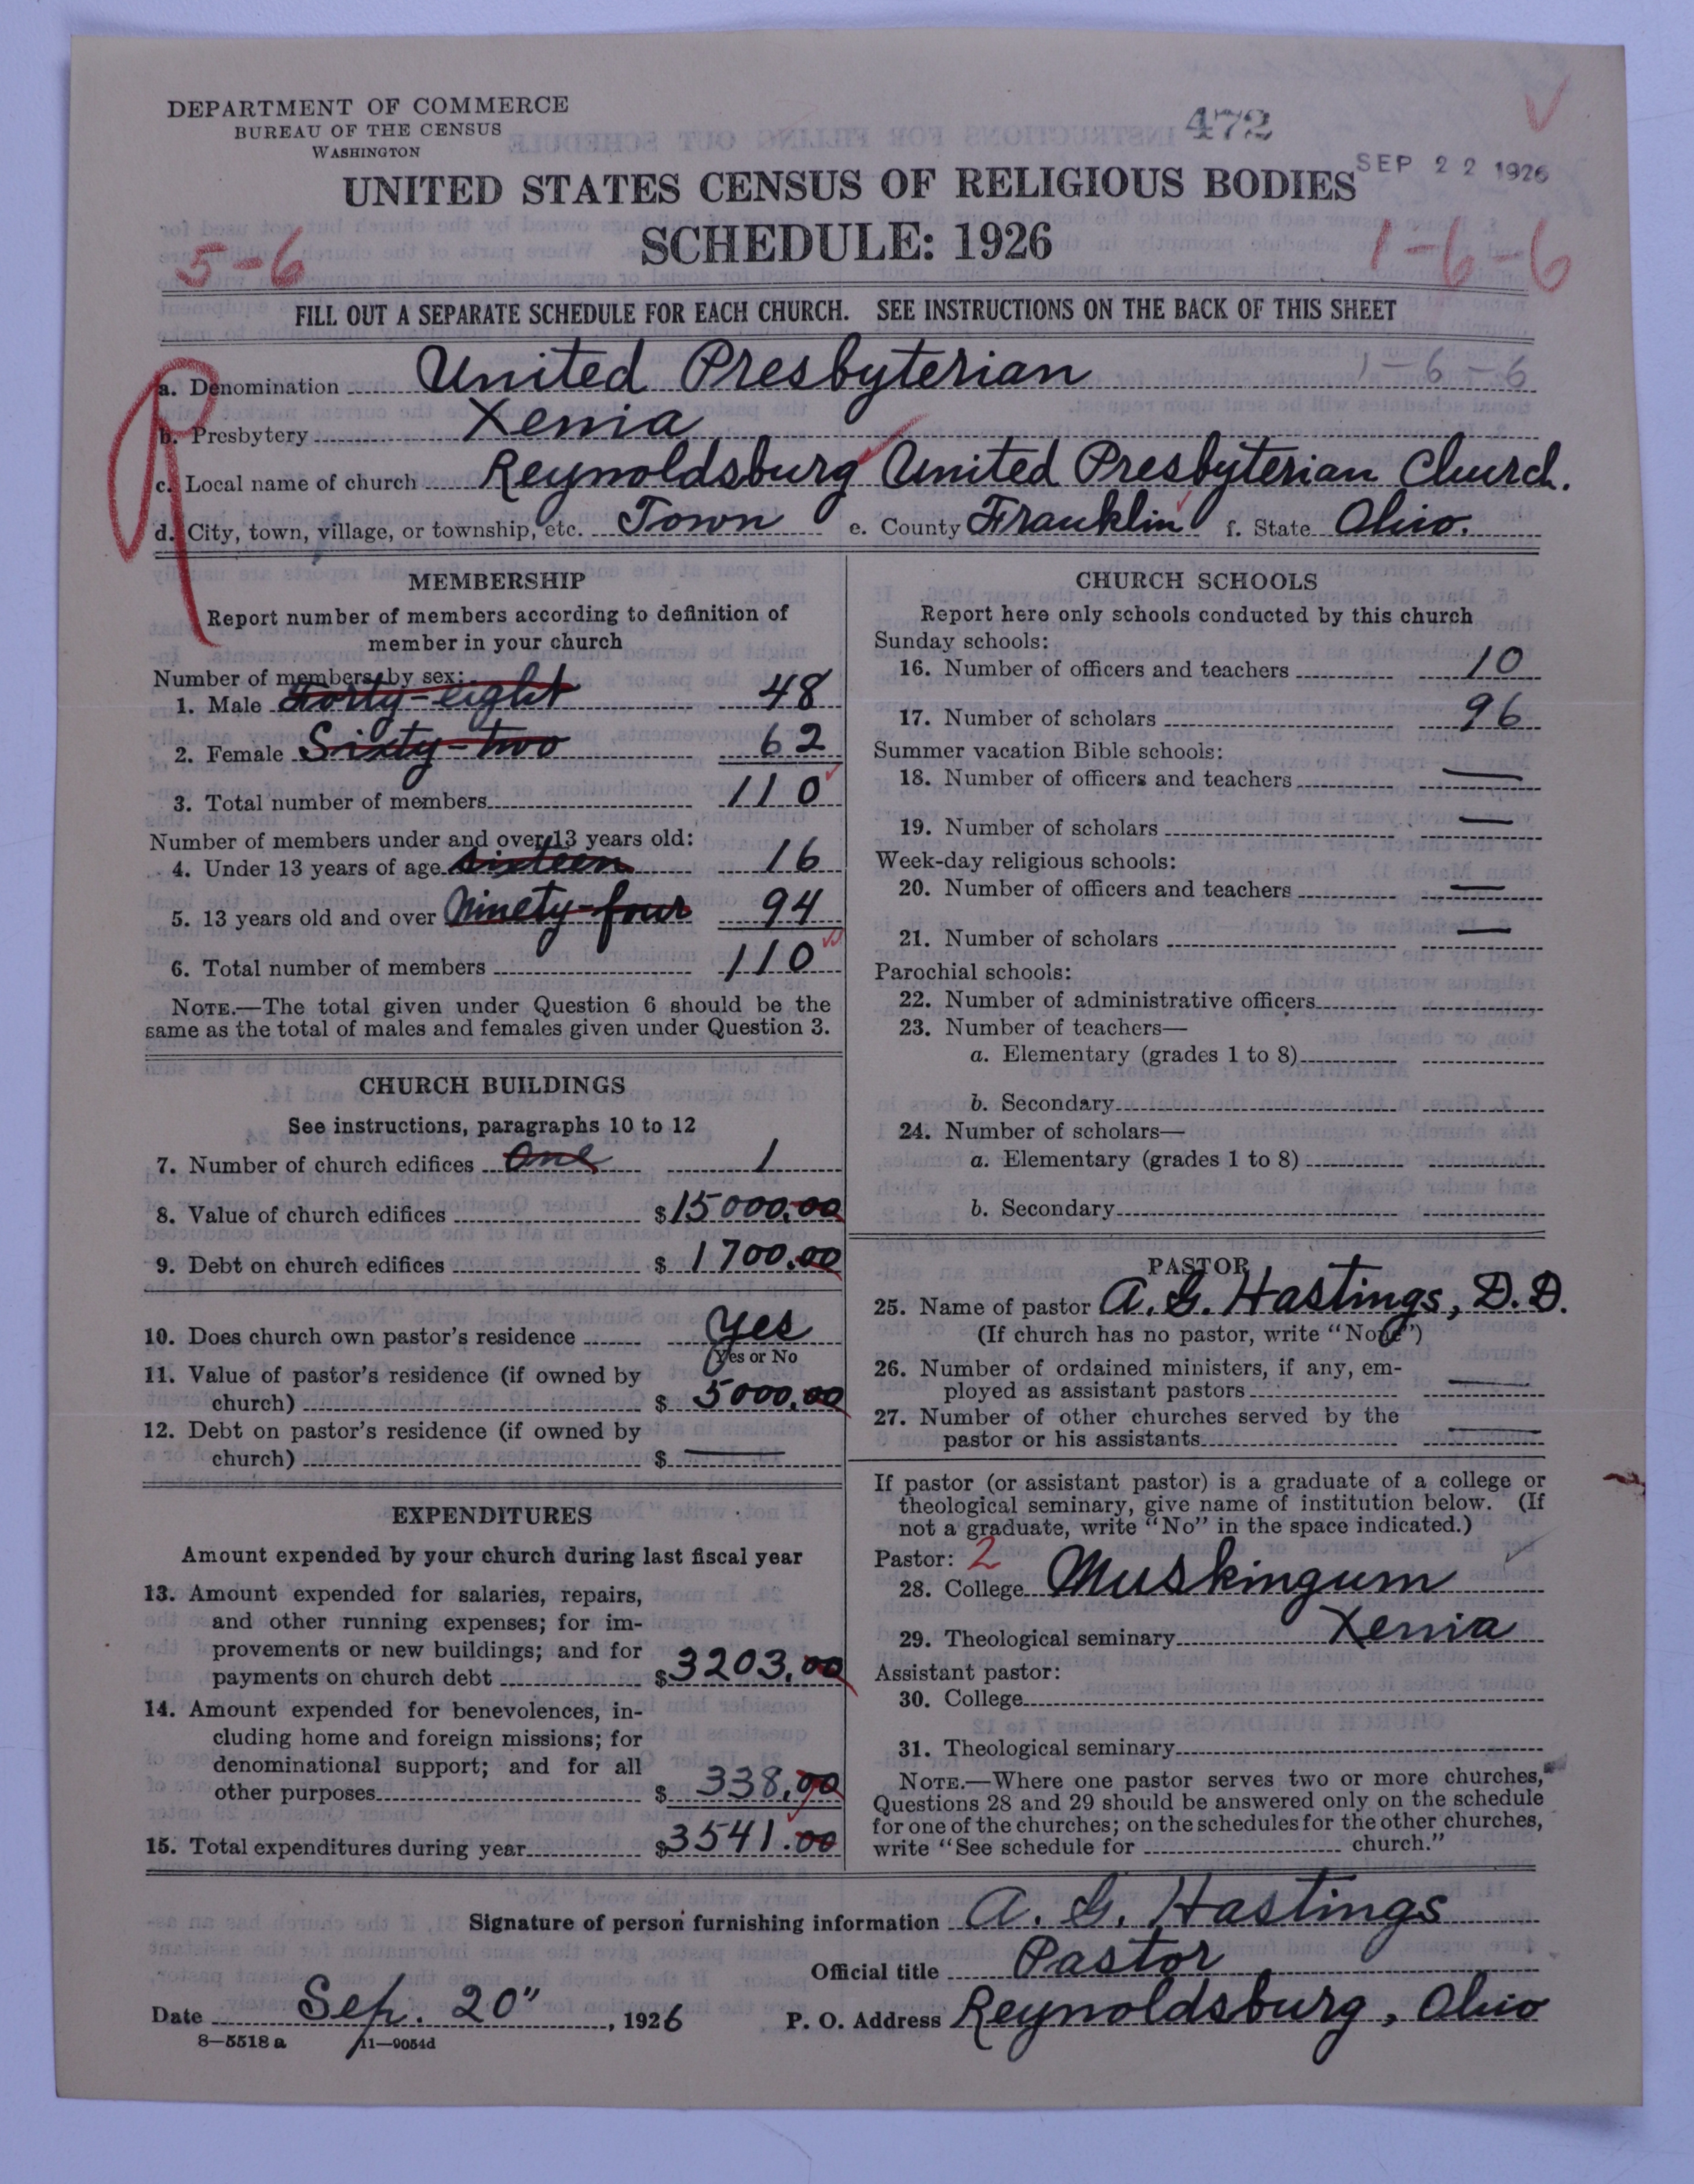 DEPARTMENT OF COMMERCE
BUREAU OF THE CENSUS
WASHINGTON
472
SEP 22 1926
UNITED STATES CENSUS OF RELIGIOUS BODIES
SCHEDULE: 1926
5-6
1-6-6
FILL OUT A SEPARATE SCHEDULE FOR EACH CHURCH. SEE INSTRUCTIONS ON THE BACK OF THIS SHEET
a. Denomination United Presbyterian 1-6-6
b. Presbytery Xenia
c. Local name of church Reynoldsburg United Presbyterian Church.
d. City, town, village, or township, etc. Town e. County Franklin f. State Ohio.
MEMBERSHIP
Report number of members according to definition of
member in your church
Number of members by sex:
1. Male Forty-eight 48
2. Female Sixty-two 62
3. Total number of members 110
Number of members under and over 13 years old:
4. Under 13 years of age sixteen 16
5. 13 years old and over Ninety-four 94
6. Total number of members 110
NOTE.—The total given under Question 6 should be the
same as the total of males and females given under Question 3.
CHURCH BUILDINGS
See instructions, paragraphs 10 to 12
7. Number of church edifices One 1
8. Value of church edifices $15000.00
9. Debt on church edifices $1700.00
10. Does church own pastor's residence Yes
(Yes or No
11. Value of pastor's residence (if owned by
church) $5000.00
12. Debt on pastor's residence (if owned by
church) $ —
EXPENDITURES
Amount expended by your church during last fiscal year
13. Amount expended for salaries, repairs,
and other running expenses; for im-
provements or new buildings; and for
payments on church debt $3203.00
14. Amount expended for benevolences, in-
cluding home and foreign missions; for
denominational support; and for all
other purposes $338.00
15. Total expenditures during year $3541.00
CHURCH SCHOOLS
Report here only schools conducted by this church
Sunday schools:
16. Number of officers and teachers 10
17. Number of scholars 96
Summer vacation Bible schools:
18. Number of officers and teachers —
19. Number of scholars —
Week-day religious schools:
20. Number of officers and teachers —
21. Number of scholars —
Parochial schools:
22. Number of administrative officers
23. Number of teachers—
a. Elementary (grades 1 to 8)
b. Secondary
24. Number of scholars—
a. Elementary (grades 1 to 8)
b. Secondary
PASTOR
25. Name of pastor A. G. Hastings, D.D.
(If church has no pastor, write "None")
26. Number of ordained ministers, if any, em-
ployed as assistant pastors —
27. Number of other churches served by the
pastor or his assistants —
If pastor (or assistant pastor) is a graduate of a college or
theological seminary, give name of institution below. (If
not a graduate, write "No" in the space indicated.)
Pastor: 2
28. College Muskingum
29. Theological seminary Xenia
Assistant pastor:
30. College
31. Theological seminary
NOTE.—Where one pastor serves two or more churches,
Questions 28 and 29 should be answered only on the schedule
for one of the churches; on the schedules for the other churches,
write "See schedule for church."
Signature of person furnishing information A. G. Hastings
Official title Pastor
Date Sep. 20", 1926 P. O. Address Reynoldsburg, Ohio
8-5518 a 11-9054d